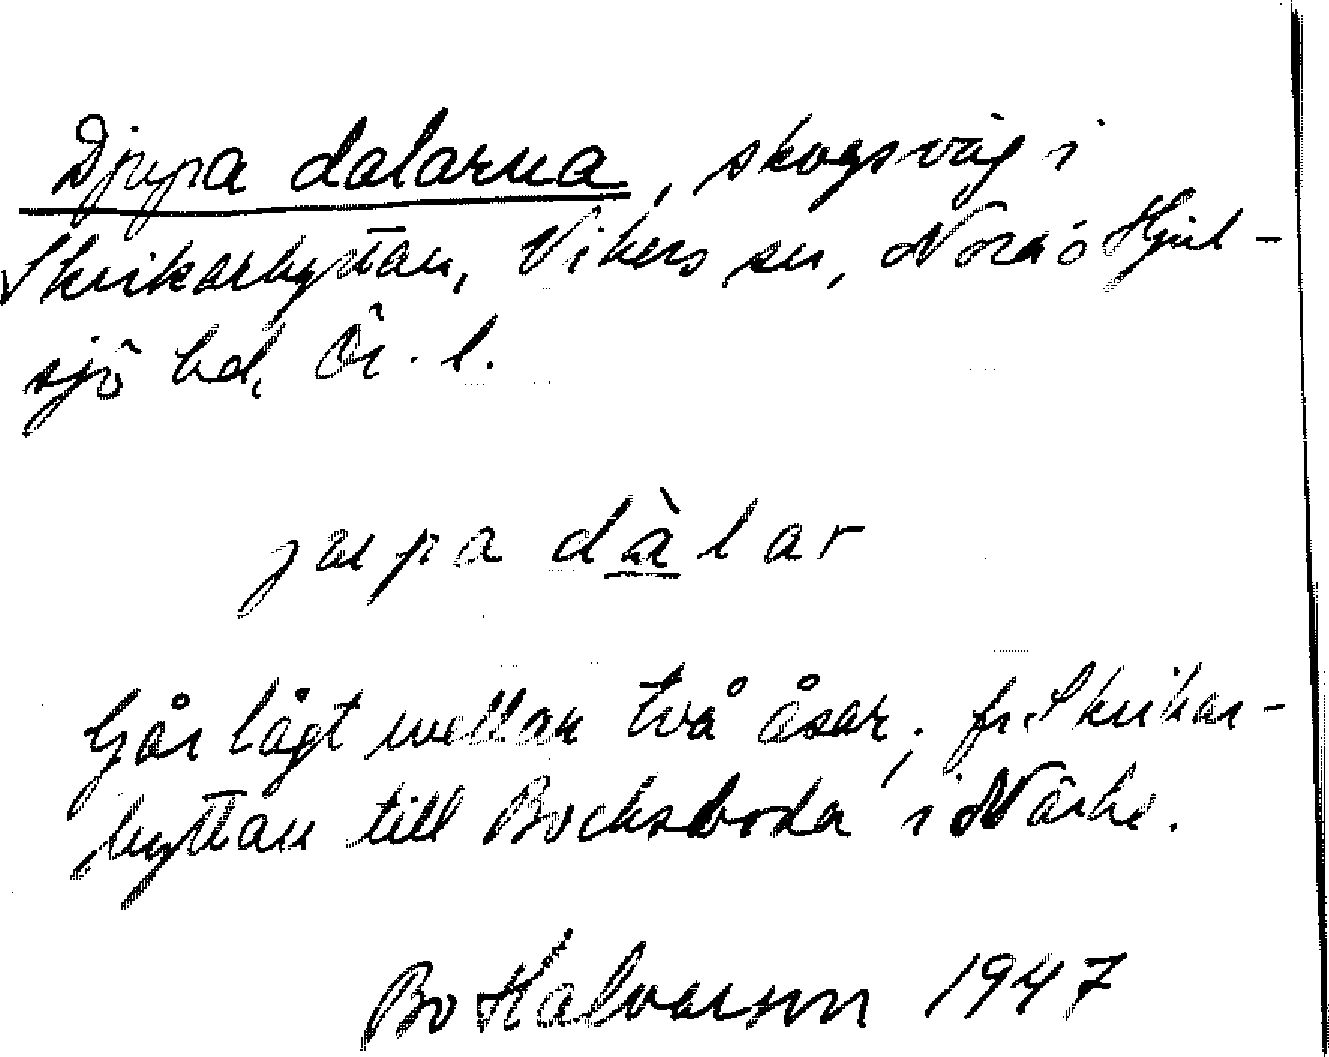 Djupa dalarna, skogsväg i
Skrikarhyttan, Vikers sn, Nora o Hjul-
sjö bd, Ör. l.
jupa dàlar
Går lågt mellan två åsar; fr. Skrikar-
hyttan till Bocksboda i Närke.
Bo Halvarson 1947